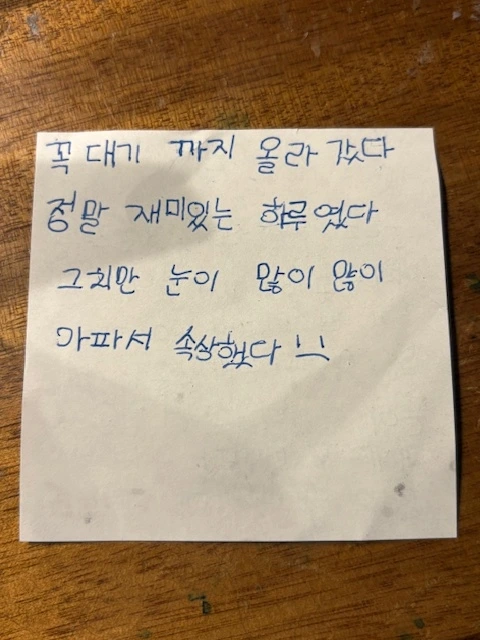 꼭대기 까지 올라 갔다
정말 재미있는 하루였다
그치만 눈이 많이 많이
아파서 속상했다